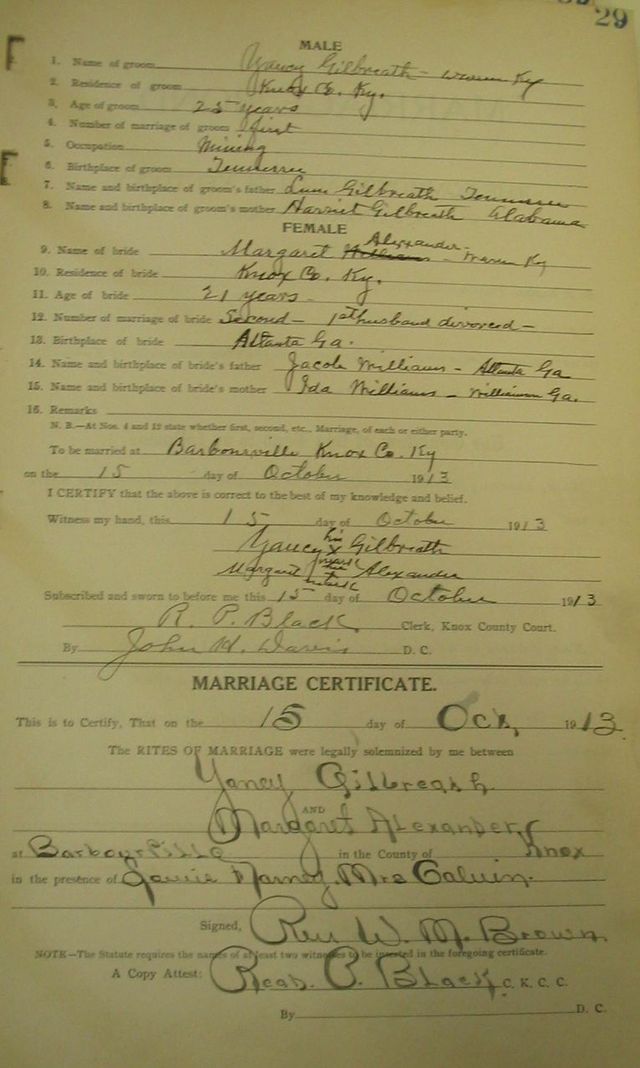 29
MALE
1. Name of groom Yancy Gilbreath - Warren Ky
2. Residence of groom Knox Co. Ky.
3. Age of groom 25 years
4. Number of marriage of groom first
5. Occupation Mining
6. Birthplace of groom Tennessee
7. Name and birthplace of groom's father Gilbreath Tennessee
8. Name and birthplace of groom's mother Harriet Gilbreath Alabama
FEMALE
Alexander
9. Name of bride Margaret Williams - Warren Ky
10. Residence of bride Knox Co. Ky.
11. Age of bride 21 years
12. Number of marriage of bride Second - 1st husband divorced -
13. Birthplace of bride Atlanta Ga.
14. Name and birthplace of bride's father Jacob Williams - Atlanta Ga
15. Name and birthplace of bride's mother Ida Williams - Ga.
16. Remarks
N. B.—At Nos. 4 and 12 state whether first, second, etc., Marriage, of each or either party.
To be married at Barbourville Knox Co. Ky
on the 15 day of October 1913
I CERTIFY that the above is correct to the best of my knowledge and belief.
Witness my hand, this 15 day of October 1913
his
Yancey x Gilbreath
mark
Margaret Alexander
Subscribed and sworn to before me this 15 day of October 1913
R. P. Black, Clerk, Knox County Court.
By John H. Davis D. C.
MARRIAGE CERTIFICATE.
This is to Certify, That on the 15 day of Oct, 1913.
The RITES OF MARRIAGE were legally solemnized by me between
Yancy Gilbreath
AND
Margaret Alexander
at Barbourville in the County of Knox
in the presence of Mrs Calvin.
Signed, Rev W. M. Brown
NOTE—The Statute requires the names of at least two witnesses to be inserted in the foregoing certificate.
A Copy Attest: P. Black C. K. C. C.
By D. C.